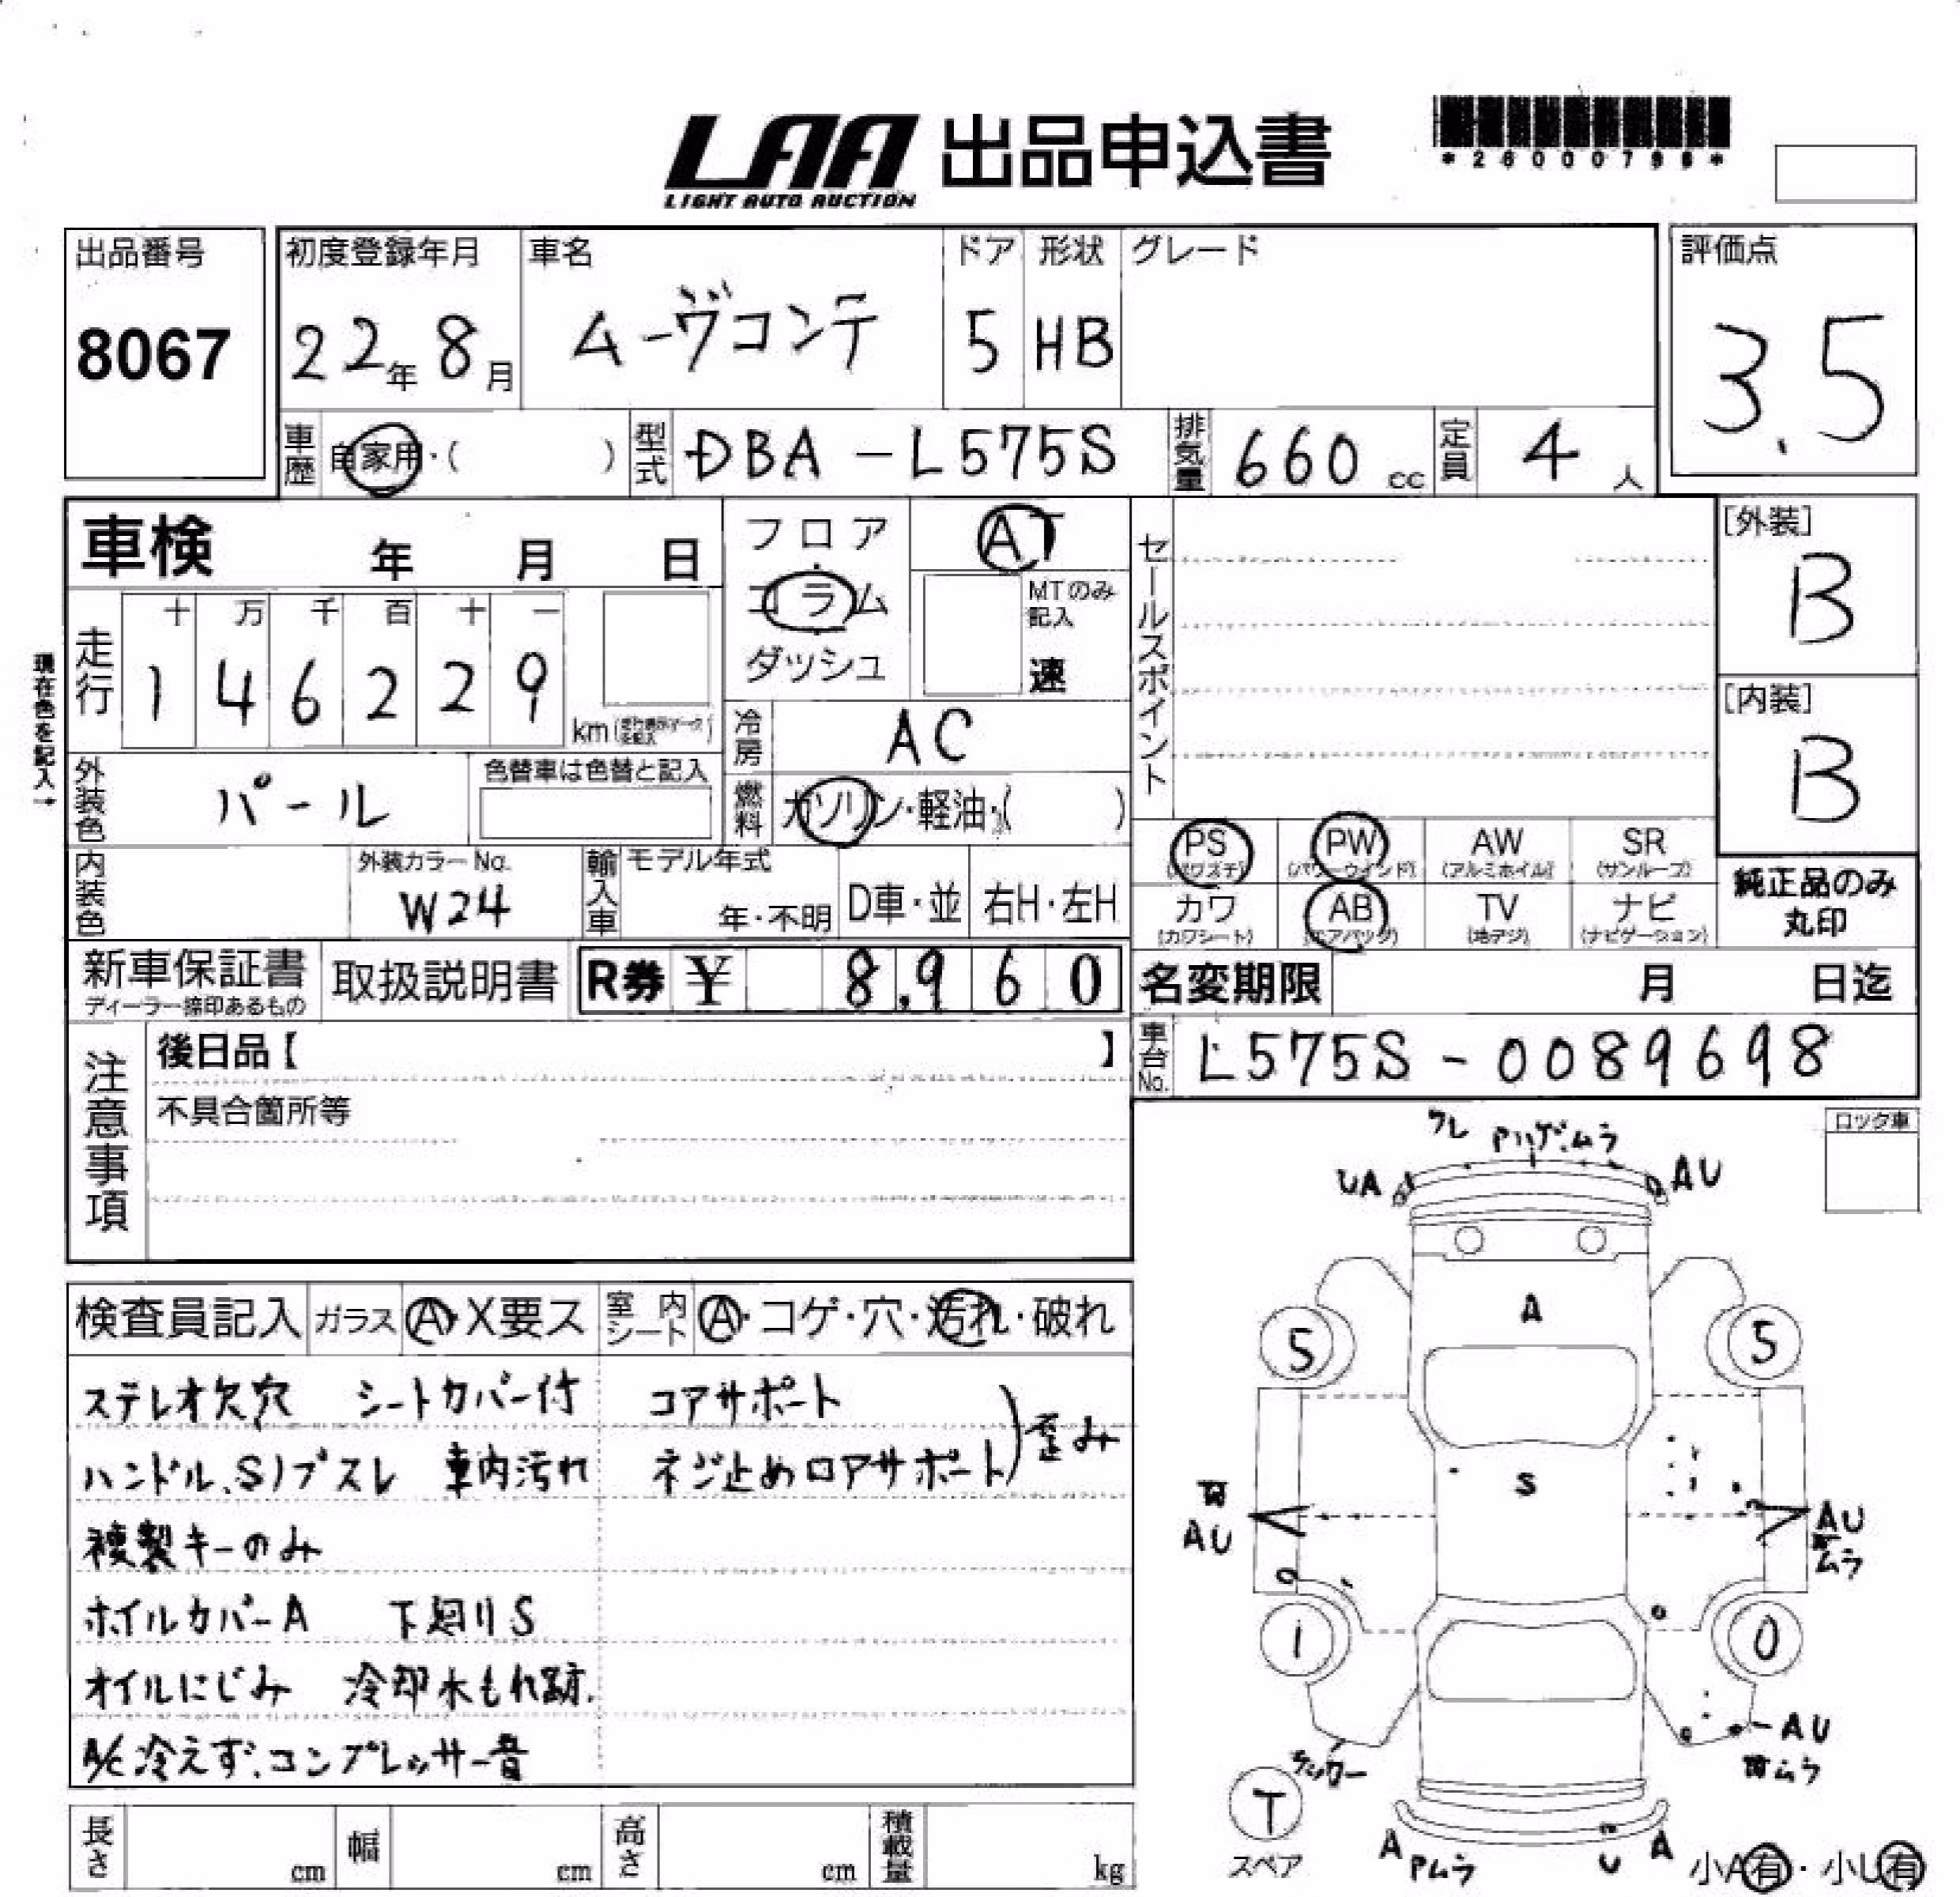 LAA 出品申込書
LIGHT AUTO AUCTION
*26000796*
出品番号 初度登録年月 車名 ドア 形状 グレード 評価点
8067 22年8月 ムーヴコンテ 5 HB 3.5
車歴 自家用・( ) 型式 DBA-L575S 排気量 660 cc 定員 4 人
車検 年 月 日 フロア AT
コラム MTのみ記入
ダッシュ 速
現在色を記入→
十 万 千 百 十 一
走行 1 4 6 2 2 9 km
冷房 AC
セールスポイント
[外装]
B
[内装]
B
外装色 パール 色替車は色替と記入
燃料 ガソリン・軽油・( )
内装色 外装カラーNo. W24 輸入車 モデル年式 年・不明 D車・並 右H・左H
PS (パワステ) PW (パワーウインド) AW (アルミホイル) SR (サンルーフ)
カワ (カワシート) AB (エアバッグ) TV (地デジ) ナビ (ナビゲーション)
純正品のみ
丸印
新車保証書 取扱説明書 R券 ¥ 8,960 名変期限 月 日迄
ディーラー捺印あるもの
車台No. L575S-0089698
注意事項
後日品【 】
不具合箇所等
ロック車
検査員記入 ガラス A・X要ス 室内シート A・コゲ・穴・汚れ・破れ
ステレオ欠穴 シートカバー付 コアサポート
ハンドル、S/ブスレ 車内汚れ ネジ止めロアサポート 歪み
複製キーのみ
ホイルカバーA 下廻りS
オイルにじみ 冷却水もれ跡.
A/C冷えず、コンプレッサー音
長さ cm 幅 cm 高さ cm 積載量 kg
ワレ Pハゲ、ムラ
UA AU
A
5 5
S
AU AU
ムラ
1 0
AU
ムラ
T
スペア
A Pムラ U A
小A有・小U有